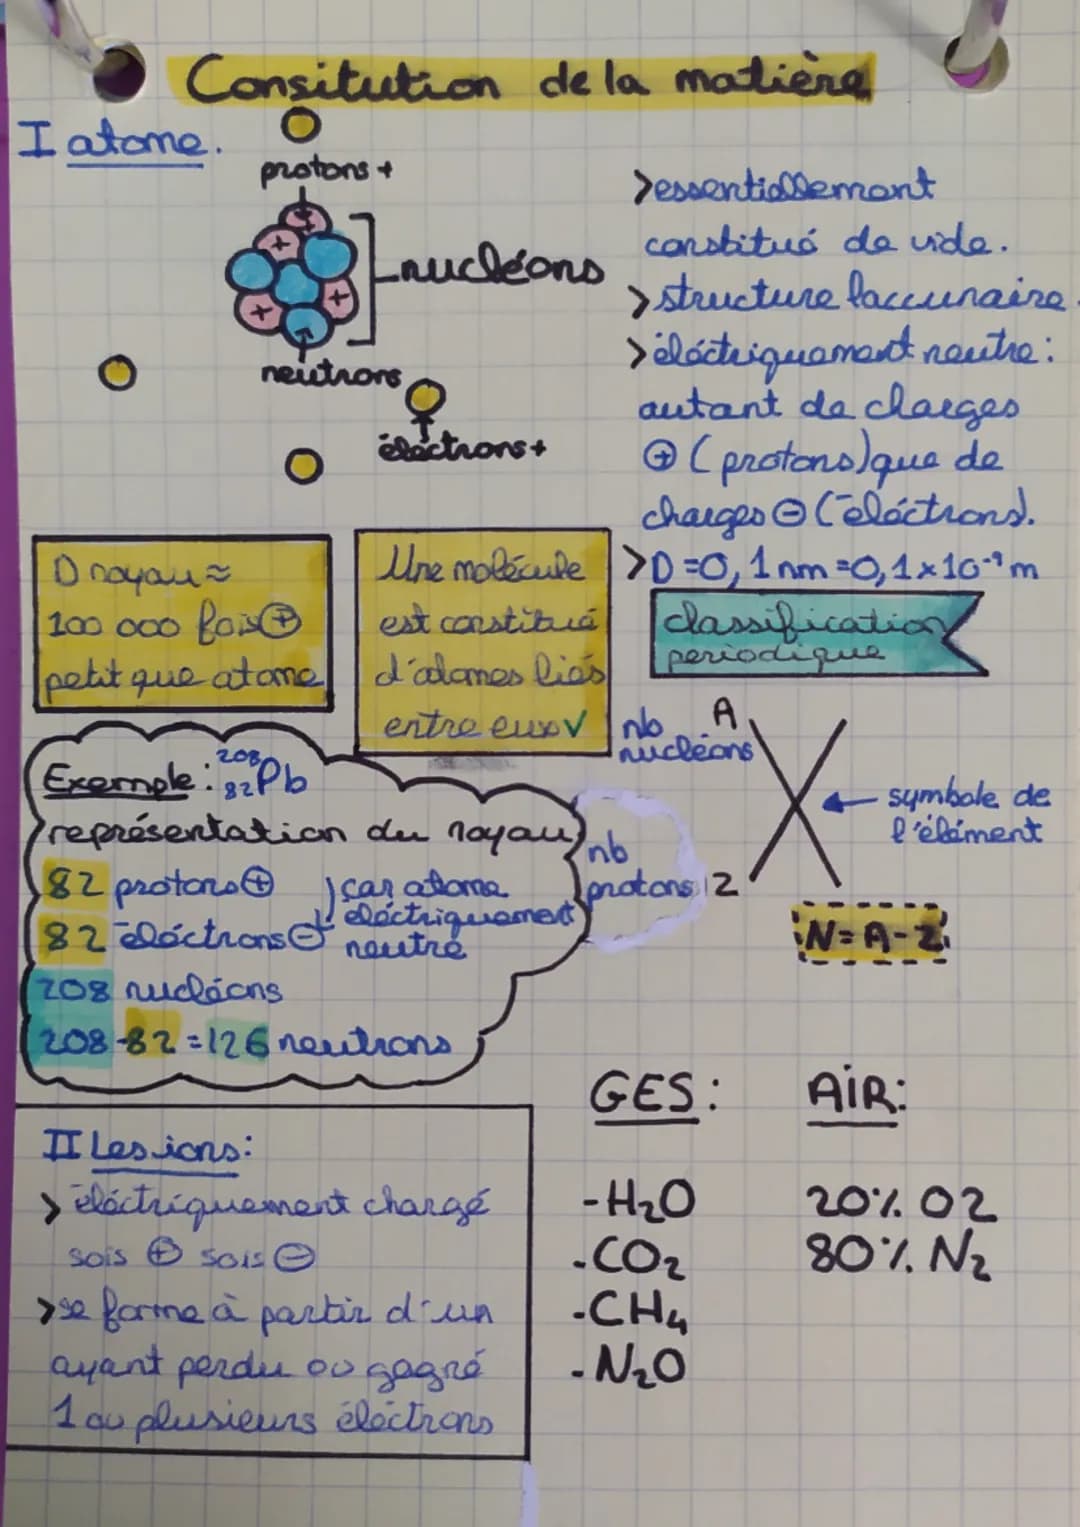 Consitution de la matière
I atome.
protons +
nucléons
neutrons
éléctrons +
>essentiellement
constitué de vide.
> structure laccunaire.
> éléctriquement neutre :
autant de charges
⊕ (protons) que de
charges ⊖ (éléctrons).
>D = 0,1 nm = 0,1 x 10⁻⁹ m
D noyau ≈
100 000 fois ⊕
petit que atome
Une molécule
est constitué
d'atomes liés
entre eux ✓
classification
periodique
nb
nucléons
A
X
symbole de
l'élément
nb
protons
Z
N = A - Z
Exemple : ²⁰⁸₈₂Pb
représentation du noyau
82 protons ⊕
82 éléctrons ⊖
car atome
éléctriquement
neutre
208 nucléons
208 - 82 = 126 neutrons
II Les ions :
> éléctriquement chargé
sois ⊕ sois ⊖
> se forme à partir d'un
ayant perdu ou gagné
1 ou plusieurs éléctrons
GES :
- H₂O
- CO₂
- CH₄
- N₂O
AiR :
20% O2
80% N₂